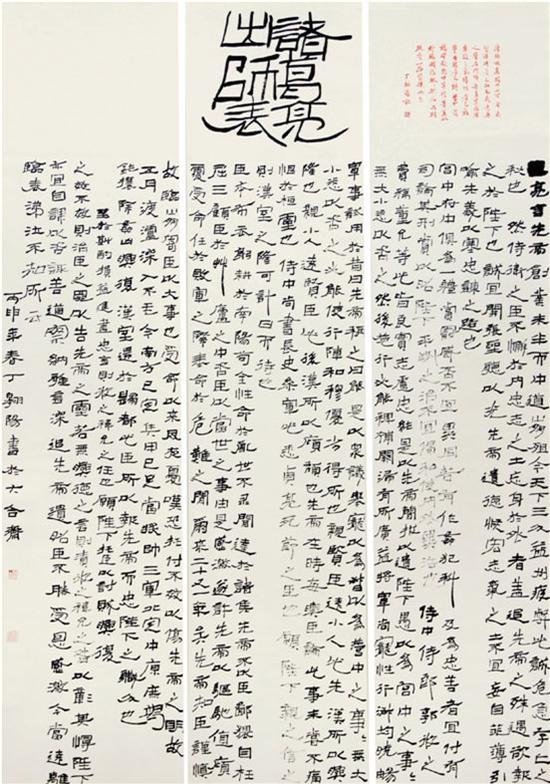 諸葛亮
出師表
亮言先帝創業未半而中道崩殂今天下三分益州疲弊此誠危急存亡之
秋也 然侍衛之臣不懈於內忠志之士忘身於外者蓋追先帝之殊遇欲報
之於陛下也誠宜開張聖聽以光先帝遺德恢宏志士之氣不宜妄自菲薄引
喻失義以塞忠諫之路也
宮中府中俱為一體陟罰臧否不宜異同若有作姦犯科 及為忠善者宜付有
司論其刑賞以昭陛下平明之治不宜偏私使內外異法也 侍中侍郎郭攸之
費禕董允等此皆良實志慮忠純是以先帝簡拔以遺陛下愚以為宮中之事事
無大小悉以咨之然後施行必能裨補闕漏有所廣益將軍向寵性行淑均曉暢
軍事試用於昔日先帝稱之曰能是以眾議舉寵以為營中之事事無大
小悉以咨之必能使行陣和穆優劣得所也親賢臣遠小人此先漢所以興
隆也親小人遠賢臣此後漢所以傾頹也先帝在時每與臣論此事未嘗不痛
恨於桓靈也 侍中尚書長史參軍此悉貞亮死節之臣也願陛下親之信之
則漢室之隆可計日而待也
臣本布衣躬耕於南陽苟全性命於亂世不求聞達於諸侯先帝不以臣鄙猥自枉
屈三顧臣於草廬之中咨臣以當世之事由是感激遂許先帝以驅馳值傾
覆受命任於敗軍之際奉命於危難之間爾來二十一年矣先帝知臣謹慎
故臨崩寄臣以大事也受命以來夙夜憂嘆恐付不效以傷先帝之明故
五月渡瀘深入不毛今南方已定兵甲已足當獎帥三軍北定中原庶竭
駑鈍攘除姦凶興復漢室還於舊都此臣所以報先帝而忠陛下之職分也
至於斟酌損益進盡忠言則攸之禕允之任也願陛下託臣以討賊興復
之效不效則治臣之罪以告先帝之靈若無興德之言則責攸之禕允之咎以彰其慢陛下
亦宜自謀以咨諏善道察納雅言深追先帝遺詔臣不勝受恩感激今當遠離
臨表涕泣不知所云
丙申年春丁翱陽書於大齋